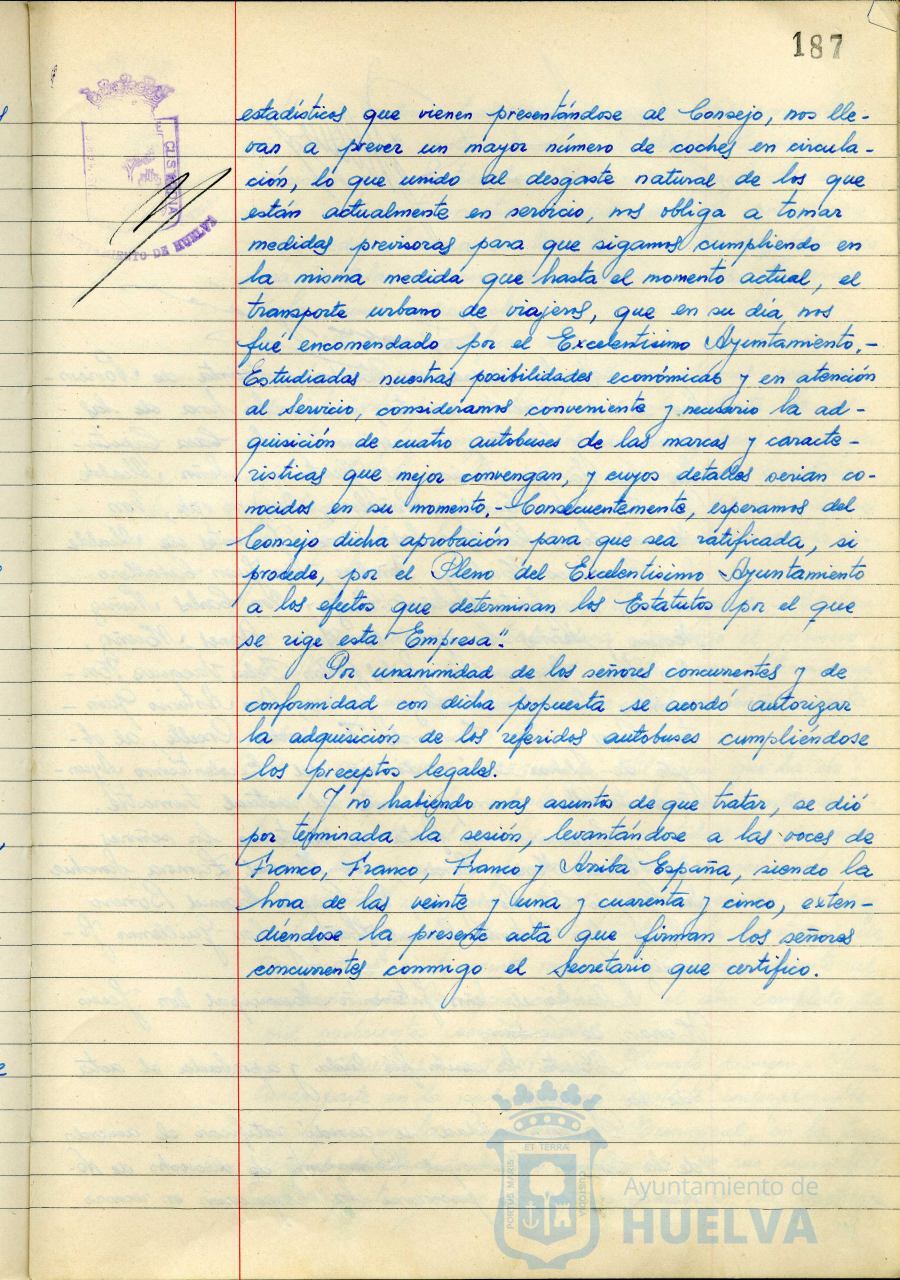 187
estadísticos que vienen presentándose al Consejo, nos lle-
van a prever un mayor número de coches en circula-
ción, lo que unido al desgaste natural de los que
están actualmente en servicio, nos obliga a tomar
medidas previsoras para que sigamos cumpliendo en
la misma medida que hasta el momento actual, el
transporte urbano de viajeros, que en su día nos
fué encomendado por el Excelentísimo Ayuntamiento.-
Estudiadas nuestras posibilidades económicas y en atención
al Servicio, consideramos conveniente y necesario la ad-
quisición de cuatro autobuses de las marcas y caracte-
rísticas que mejor convengan, y cuyos detalles serian co-
nocidos en su momento.- Consecuentemente, esperamos del
Consejo dicha aprobación para que sea ratificada, si
procede, por el Pleno del Excelentísimo Ayuntamiento
a los efectos que determinan los Estatutos por el que
se rige esta Empresa".
Por unanimidad de los señores concurrentes y de
conformidad con dicha propuesta se acordó autorizar
la adquisición de los referidos autobuses cumpliéndose
los preceptos legales.
Y no habiendo mas asuntos de que tratar, se dió
por terminada la sesión, levantándose a las voces de
Franco, Franco, Franco y Arriba España, siendo la
hora de las veinte y una y cuarenta y cinco, exten-
diéndose la presente acta que firman los señores
concurrentes conmigo el Secretario que certifico.
DE HUELVA
ET TERRA
PORTUS MARIS
CUSTODIA
Ayuntamiento de
HUELVA